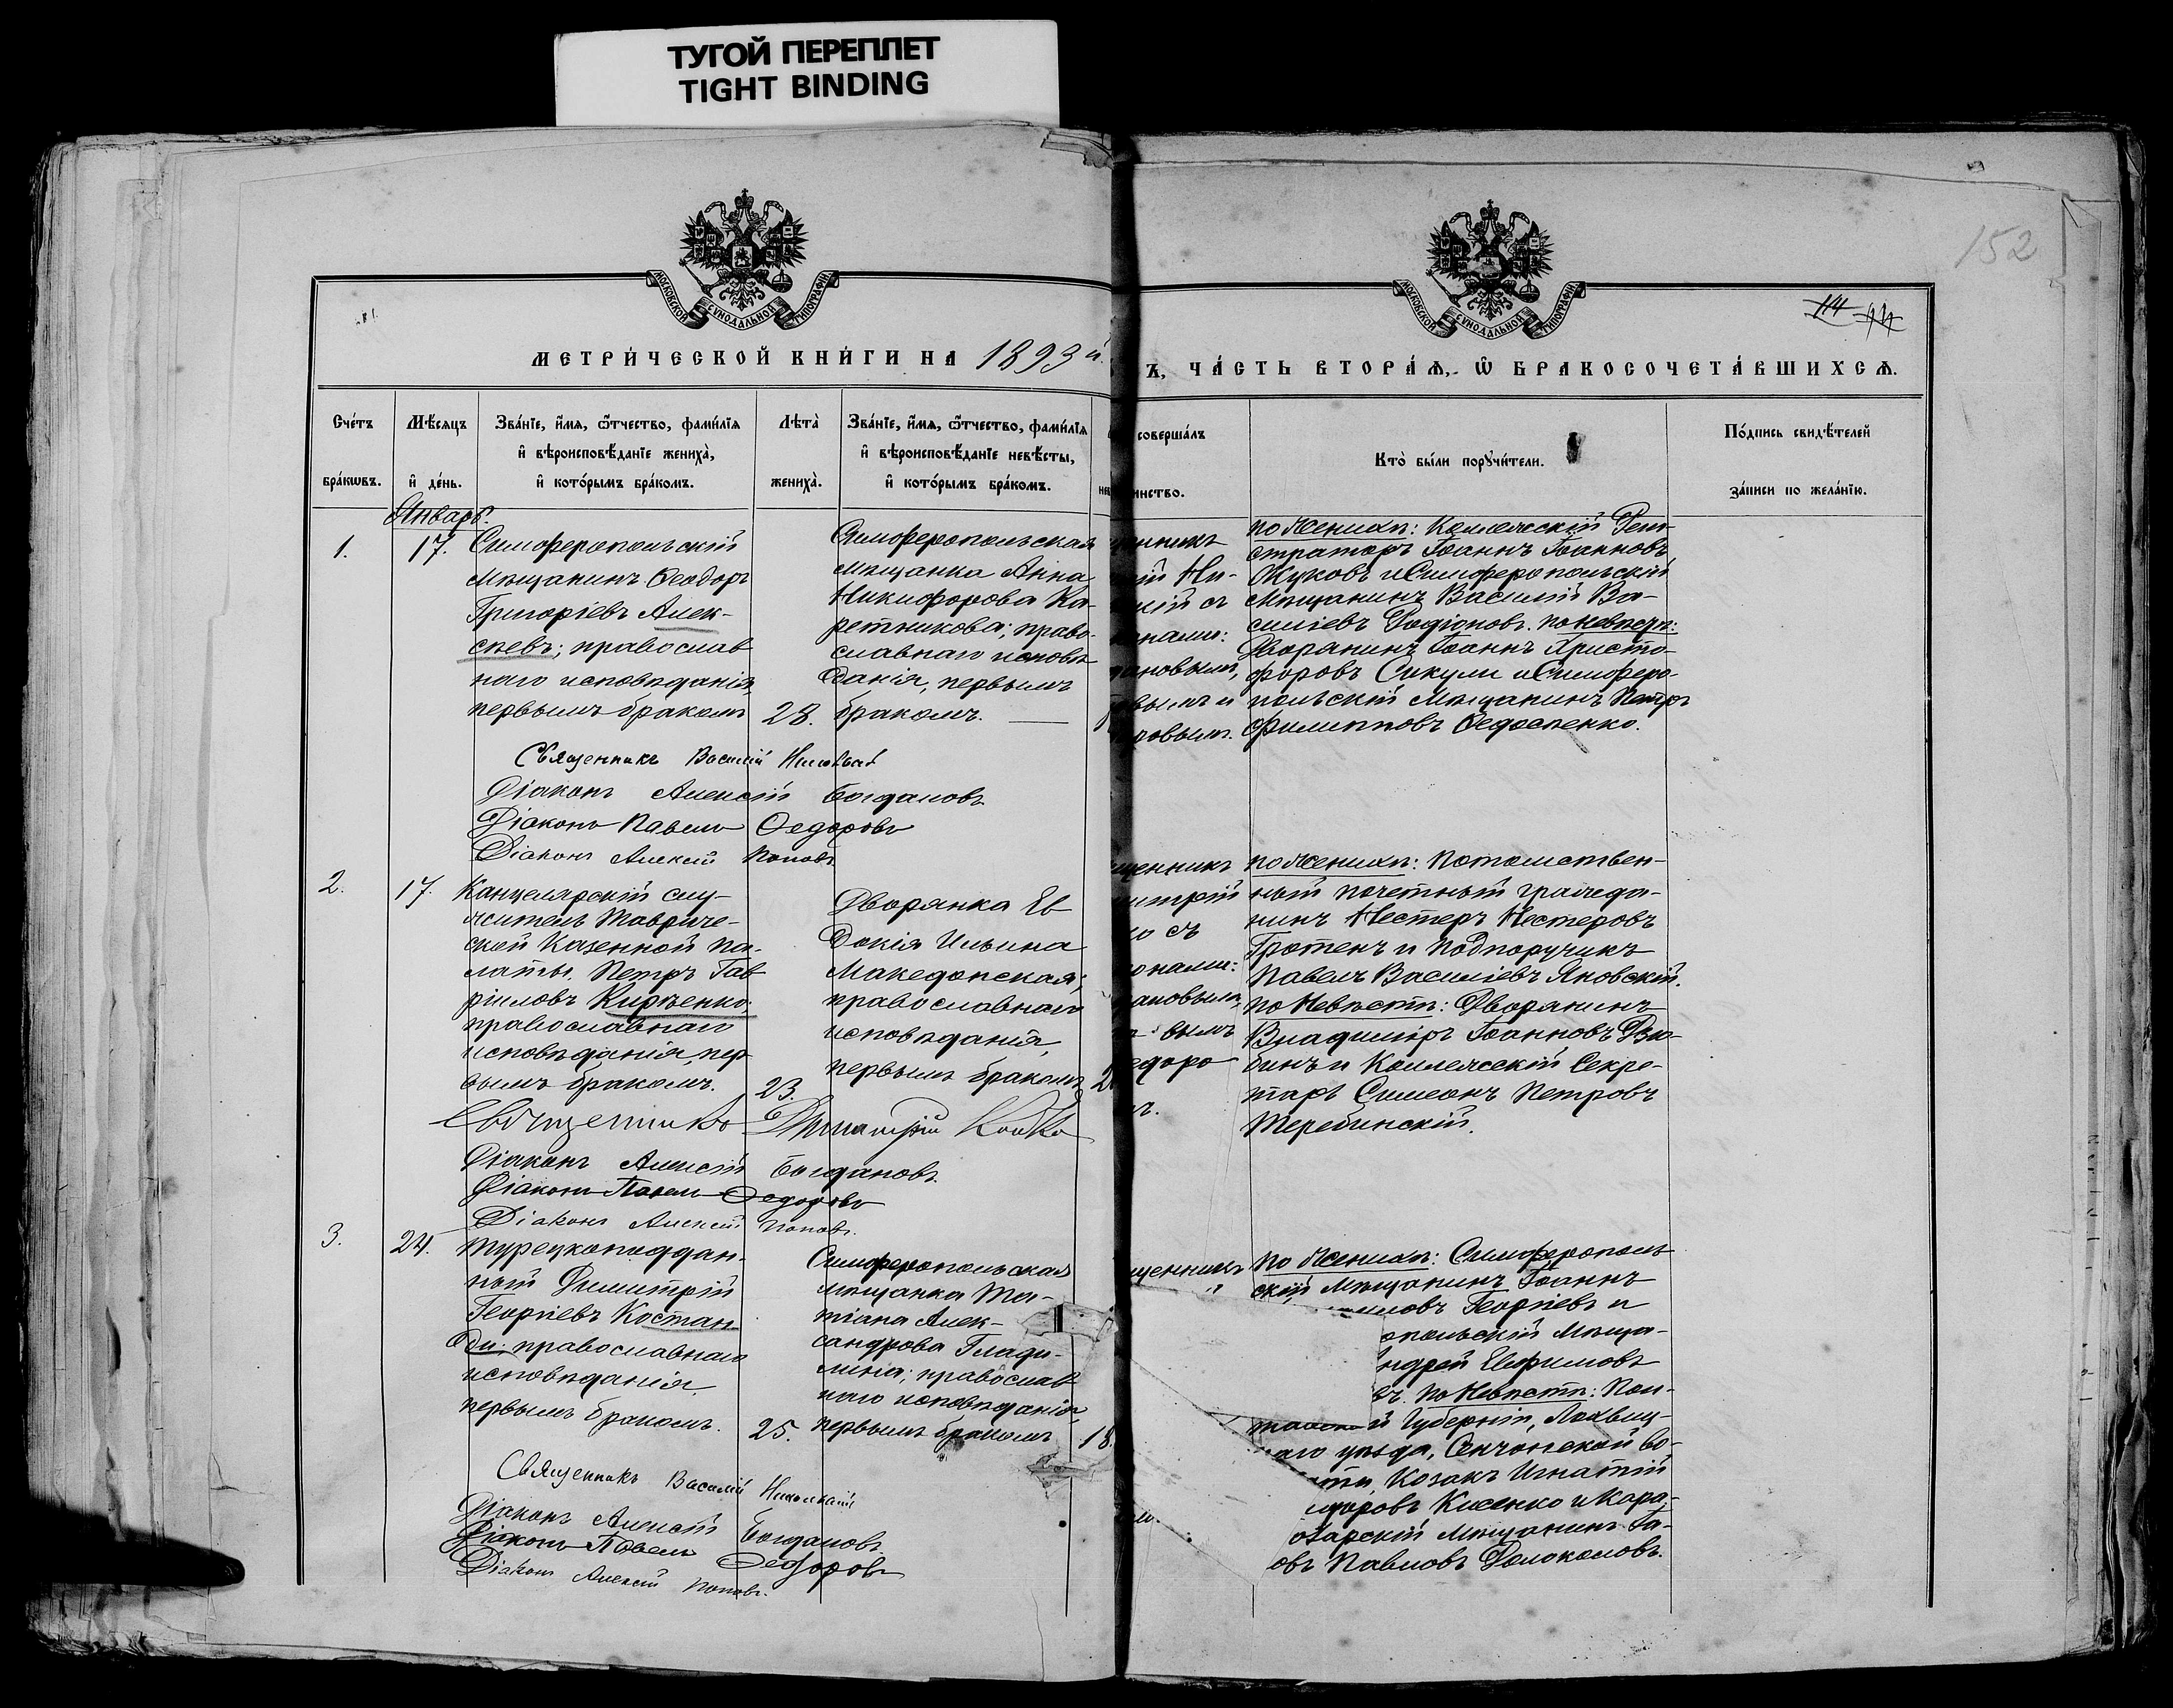 ТУГОЙ ПЕРЕПЛЕТ
TIGHT BINDING
152
114
МОСКОВСКОЙ СѴНОДАЛЬНОЙ ТИПОГРАФІИ
МОСКОВСКОЙ СѴНОДАЛЬНОЙ ТИПОГРАФІИ
МЕТРИ́ЧЕСКОЙ КНИ́ГИ НА 1893й
Ъ, ЧА́СТЬ ВТОРА́Ѧ, Ѡ҆ БРАКОСОЧЕТА́ВШИХСѦ.
Сче́тъ
бра́кѡвъ.
Мѣ́сяцъ
и҆ де́нь.
Зва́нїе, и҆́мѧ, ѻ҆́тчество, фами́лїѧ
и҆ вѣроисповѣ́данїе жениха̀,
и҆ кото́рымъ бра́комъ.
Лѣта̀
жениха̀.
Зва́нїе, и҆́мѧ, ѻ҆́тчество, фами́лїѧ
и҆ вѣроисповѣ́данїе невѣ́сты,
и҆ кото́рымъ бра́комъ.
соверша́лъ
инство.
Кто̀ бы́ли порꙋчи́тели.
По́дпись свидѣ́телей
за́писи по жела́нїю.
Январь.
1.
17.
Симферопольскій
Мѣщанинъ Ѳеодоръ
Григоріевъ Алек-
сѣевъ; православ
наго исповѣданія,
первымъ бракомъ
28.
Симферопольская
Мѣщанка Анна
Никифорова Ка-
ретникова; право-
славнаго исповѣ
данія, первымъ
бракомъ.
щенникъ
ій Ни-
кій съ
онами:
ановымъ,
вымъ и
ровымъ.
по Женихѣ: Коллежскій Реги-
страторъ Іоаннъ Іоанновъ
Жуковъ и Симферопольскій
Мѣщанинъ Василій Ва-
силіевъ Родіоновъ. по невѣстѣ:
Дворянинъ Іоаннъ Христо-
форовъ Сикули и Симферо-
польскій Мѣщанинъ Петръ
Филипповъ Ѳедосѣенко.
Священникъ Василій Никольскій
Діаконъ Алексій Богдановъ
Діаконъ Павелъ Ѳедоровъ
Діаконъ Алексій Поповъ
2.
17.
Канцелярскій слу-
житель Тавриче-
ской Казенной Па-
латы Петръ Гав
ріиловъ Кириенко;
православнаго
исповѣданія, пер
вымъ бракомъ.
23.
Дворянка Ев
докія Ильина
Македонская;
православнаго
исповѣданія,
первымъ бракомъ
щенникъ
итрій
о съ
онами:
ановымъ,
вымъ
едоро
ъ.
по Женихѣ: Потомствен-
ный почетный гражда-
нинъ Нестеръ Нестеровъ
Гротенъ и Подпоручикъ
Павелъ Василіевъ Яновскій.
по Невѣстѣ: Дворянинъ
Владиміръ Іоанновъ Дзю-
бинъ и Коллежскій Секре-
тарь Симеонъ Петровъ
Теребинскій.
Священникъ Димитрій Койко
Діаконъ Алексій Богдановъ.
Діаконъ Павелъ Ѳедоровъ
Діаконъ Алексій Поповъ.
3.
24.
Турецкоподдан-
ный Димитрій
Георгіевъ Костан
ди; православнаго
исповѣданія,
первымъ бракомъ.
25.
Симферопольская
Мѣщанка Та-
тіана Алек-
сандрова Глади-
лина; православ
наго исповѣданія,
первымъ бракомъ
18.
щенникъ
по Женихѣ: Симферополь
скій Мѣщанинъ Іоаннъ
иловъ Георгіевъ и
опольскій Мѣща-
ндрей Евфимовъ
въ. по Невѣстѣ: Пол-
тавской Губерніи, Лохвиц-
каго уѣзда, Сенчанской во-
сти, Козакъ Игнатій
доровъ Кисенко и Кара-
базарскій Мѣщанинъ Іа-
овъ Павловъ Долоколовъ.
Священникъ Василій Никольскій
Діаконъ Алексій Богдановъ.
Діаконъ Павелъ Ѳедоровъ
Діаконъ Алексій Поповъ.